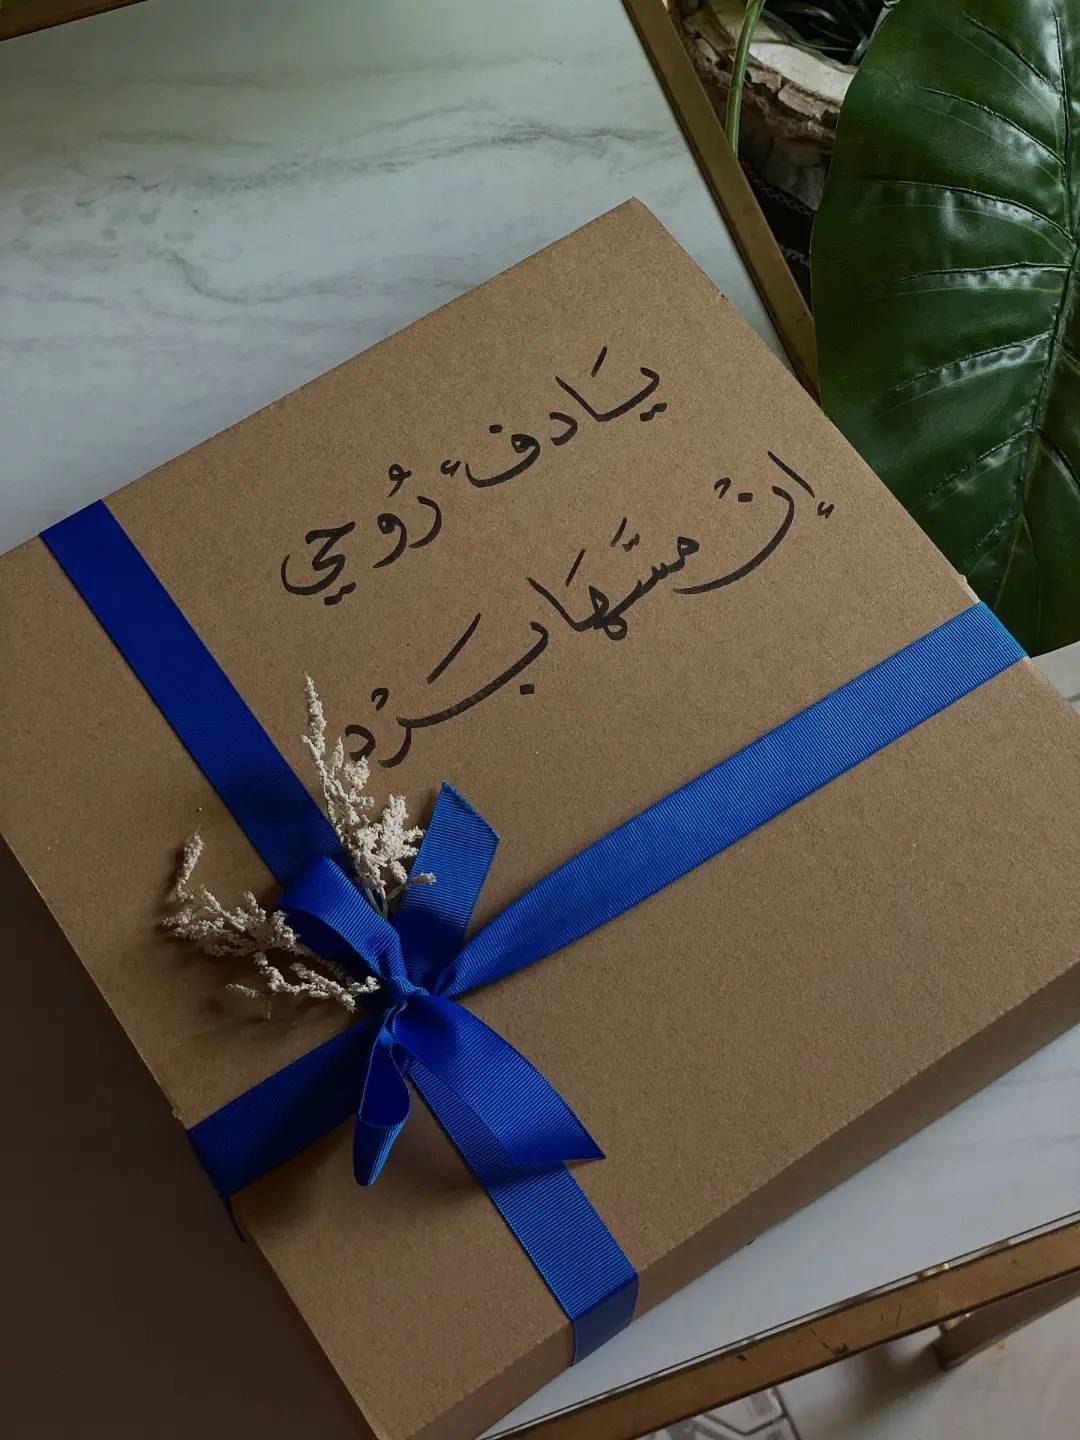 يَا دفء رُوحي
إنْ مسَّهَا بَرْد